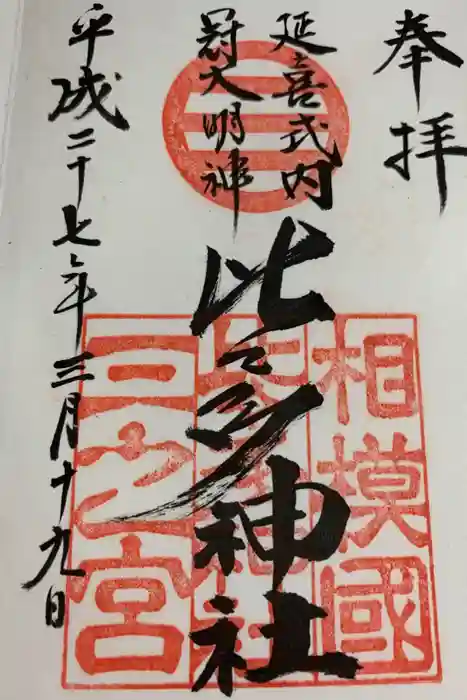 奉拝
延喜式内
冠大明神
比々多神社
平成二十七年三月十九日
相模國
比々多神社
三之宮